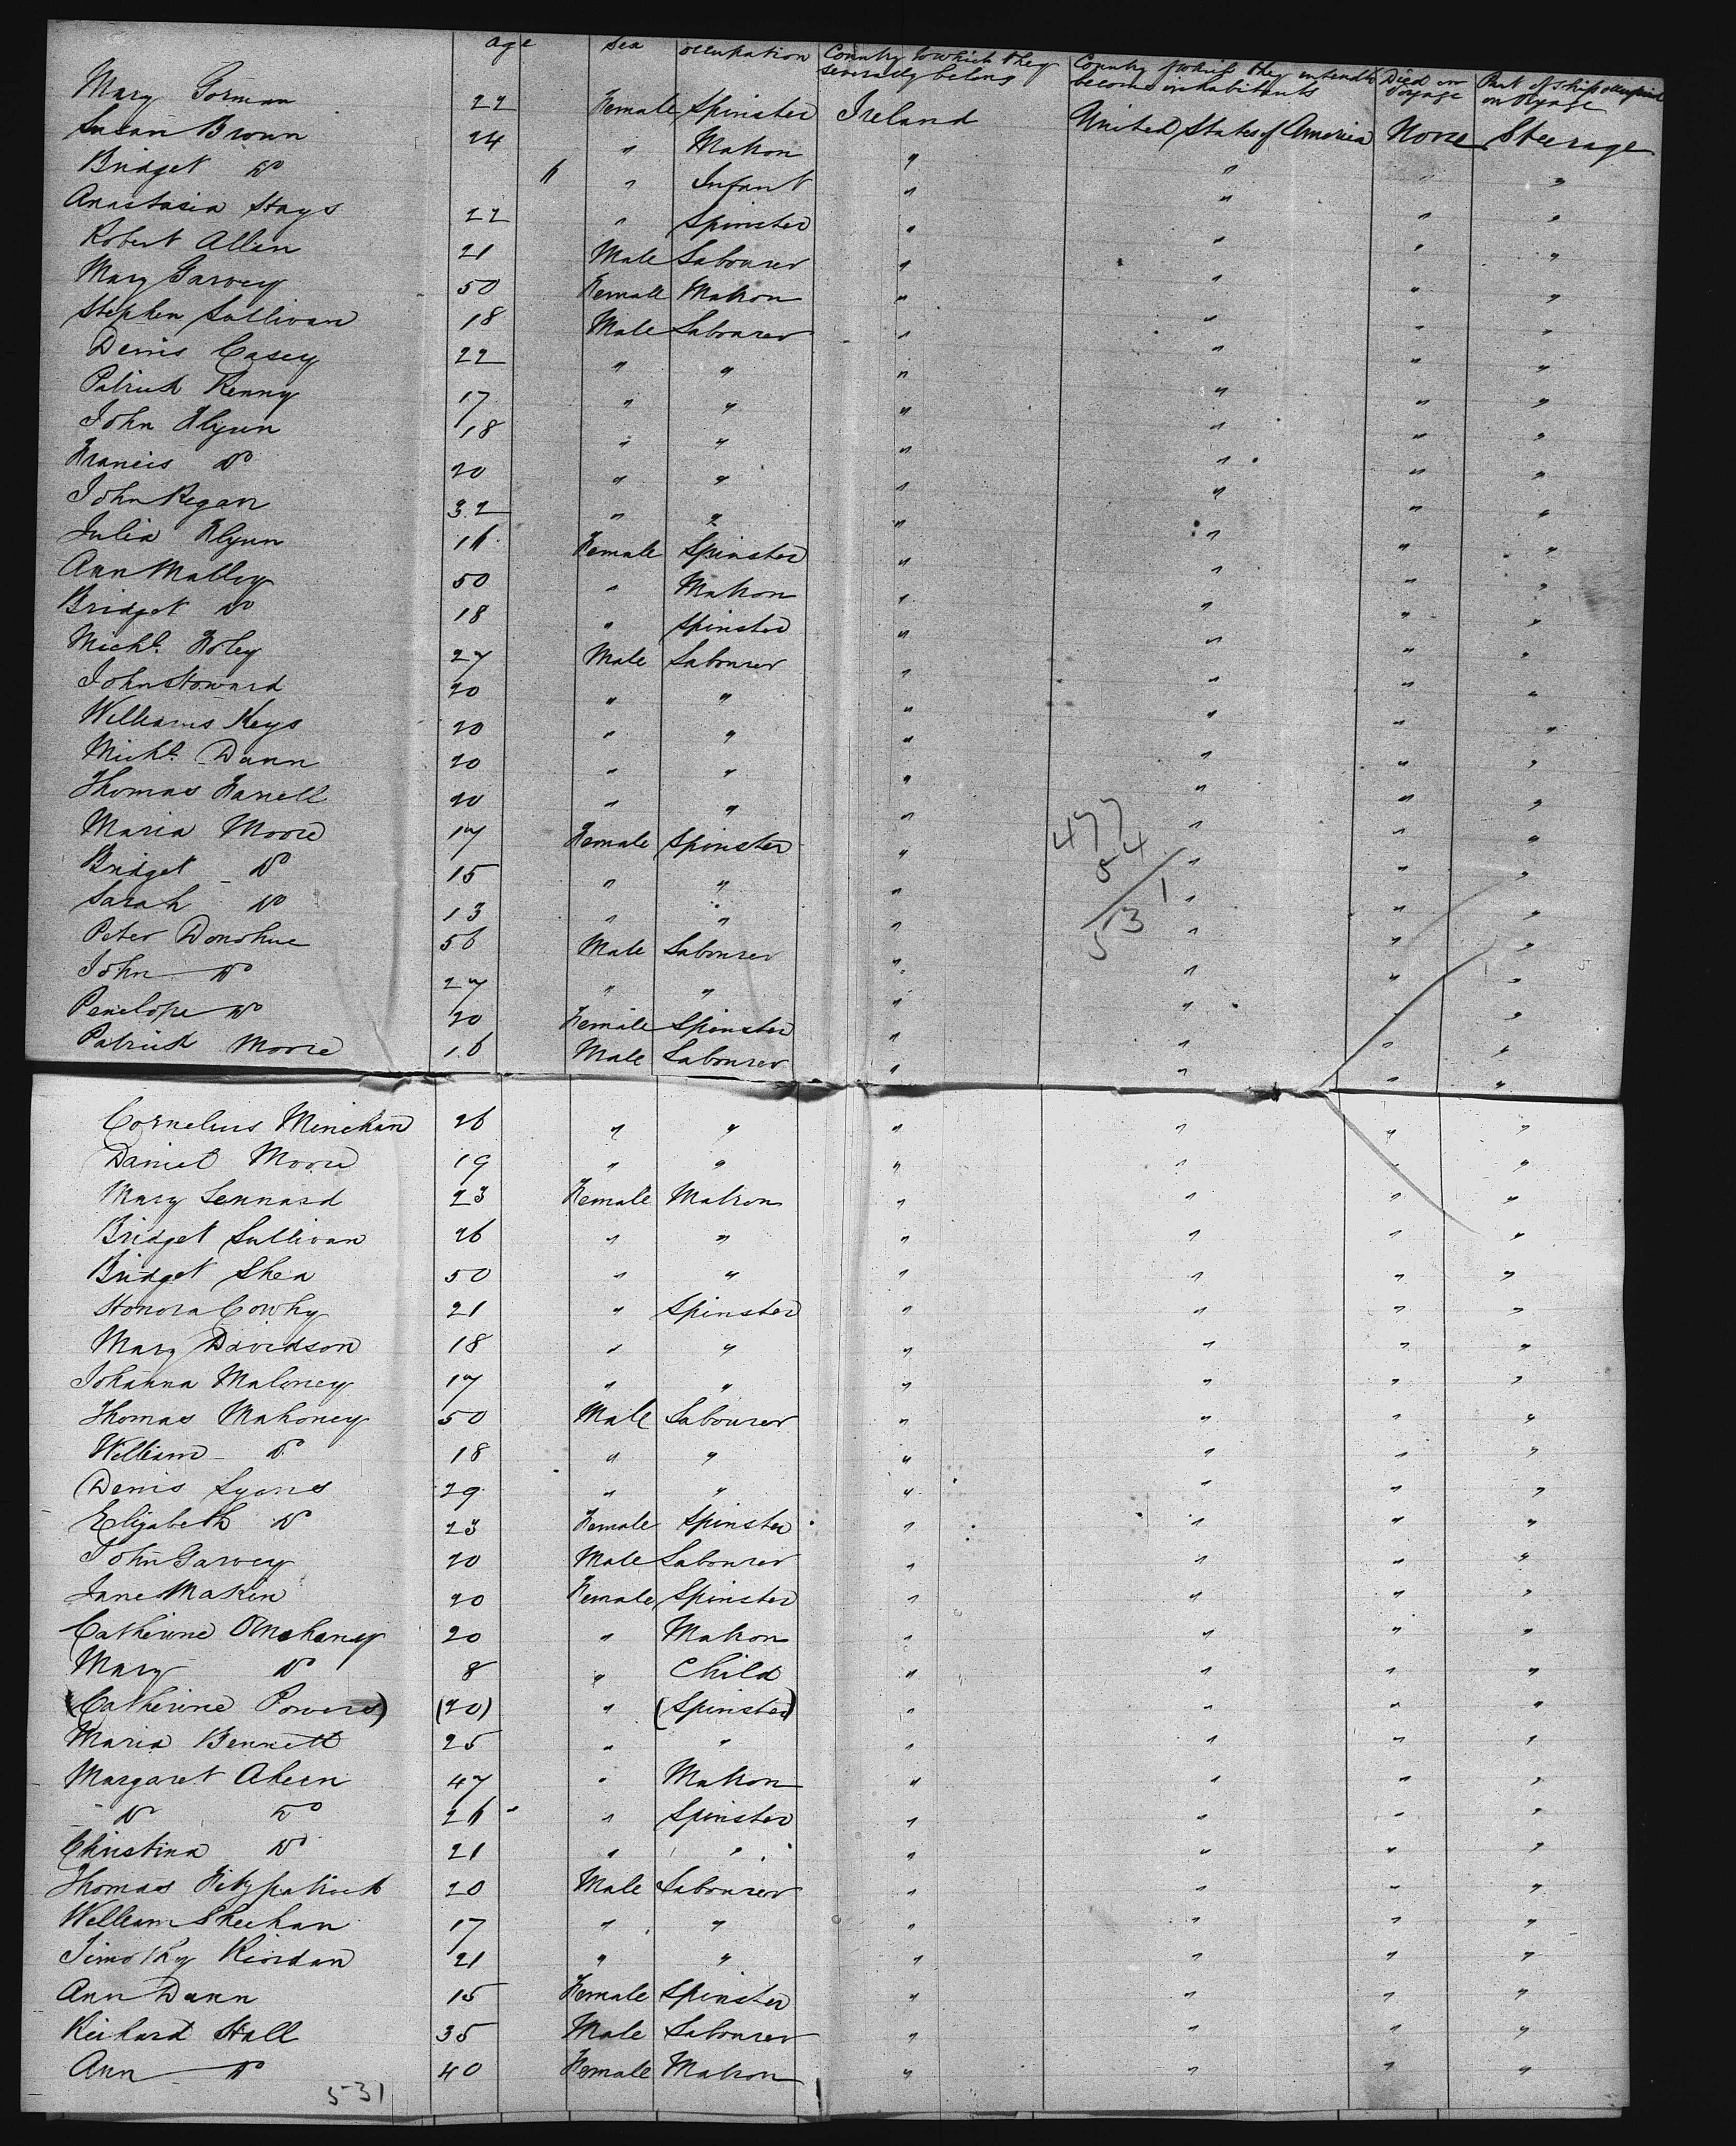 age sex occupation Country to which they severally belong Country of which they intend to become inhabitants Died on voyage Part of ship occupied on voyage
Mary Gorman 22 Female Spinster Ireland United States of America None Steerage
Susan Brown 24 " Matron " " " "
Bridget Do 6 " Infant " " " "
Anastasia Hays 22 " Spinster " " " "
Robert Allan 21 Male Labourer " " " "
Mary Garvey 50 Female Matron " " " "
Stephen Sullivan 18 Male Labourer " " " "
Denis Casey 22 " " " " " "
Patrick Kenny 17 " " " " " "
John Flynn 18 " " " " " "
Francis Do 20 " " " " " "
John Regan 32 " " " " " "
Julia Flynn 16 Female Spinster " " " "
Ann Malley 50 " Matron " " " "
Bridget Do 18 " Spinster " " " "
Michl. Foley 27 Male Labourer " " " "
John Howard 20 " " " " " "
Williams Keys 20 " " " " " "
Michl. Dunn 20 " " " " " "
Thomas Farrell 20 " " " " " "
Maria Moore 17 Female Spinster " " " "
Bridget Do 15 " " " " " "
Sarah Do 13 " " " " " "
Peter Donohue 56 Male Labourer " " " "
John Do 27 " " " " " "
Penelope Do 20 Female Spinster " " " "
Patrick Moore 16 Male Labourer " " " "
477
54
531
Cornelius Minehan 26 " " " " " "
Daniel Moore 19 " " " " " "
Mary Lennard 23 Female Matron " " " "
Bridget Sullivan 26 " " " " " "
Bridget Shea 50 " " " " " "
Honora Cowhy 21 " Spinster " " " "
Mary Davidson 18 " " " " " "
Johanna Maloney 17 " " " " " "
Thomas Mahoney 50 Male Labourer " " " "
William Do 18 " " " " " "
Denis Lyons 29 " " " " " "
Elizabeth Do 23 Female Spinster " " " "
John Garvey 20 Male Labourer " " " "
Jane Makin 20 Female Spinster " " " "
Catherine OMahoney 20 " Matron " " " "
Mary Do 8 " Child " " " "
(Catherine Powers) (20) " (Spinster) " " " "
Maria Bennett 25 " " " " " "
Margaret Ahern 47 " Matron " " " "
Do Do 26 " Spinster " " " "
Christina Do 21 " " " " " "
Thomas Fitzpatrick 20 Male Labourer " " " "
William Sheehan 17 " " " " " "
Timothy Riordan 21 " " " " " "
Ann Dunn 15 Female Spinster " " " "
Richard Hall 35 Male Labourer " " " "
Ann Do 40 Female Matron " " " "
531